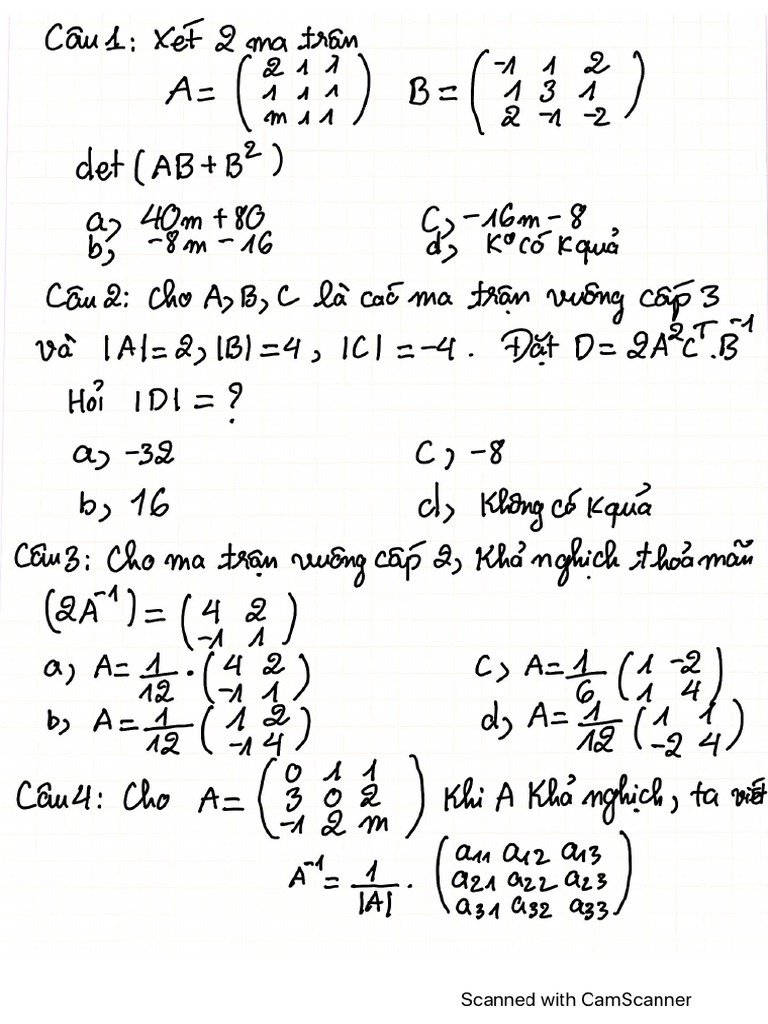 Câu 1: Xét 2 ma trận
A = ( 2 1 1 ; 1 1 1 ; m 1 1 ) B = ( -1 1 2 ; 1 3 1 ; 2 -1 -2 )
det (AB + B²)
a, 40m + 80 C, -16m - 8
b, -8m - 16 d, K° có K quả
Câu 2: Cho A, B, C là các ma trận vuông cấp 3
và |A| = 2, |B| = 4, |C| = -4. Đặt D = 2A²Cᵀ.B⁻¹
Hỏi |D| = ?
a, -32 C, -8
b, 16 d, Không có K quả
Câu 3: Cho ma trận vuông cấp 2, Khả nghịch thoả mãn
(2A⁻¹) = ( 4 2 ; -1 1 )
a, A = 1/12 . ( 4 2 ; -1 1 ) C, A = 1/6 ( 1 -2 ; 1 4 )
b, A = 1/12 ( 1 2 ; -1 4 ) d, A = 1/12 ( 1 1 ; -2 4 )
Câu 4: Cho A = ( 0 1 1 ; 3 0 2 ; -1 2 m ) Khi A Khả nghịch, ta viết
A⁻¹ = 1/|A| . ( a11 a12 a13 ; a21 a22 a23 ; a31 a32 a33 )
Scanned with CamScanner